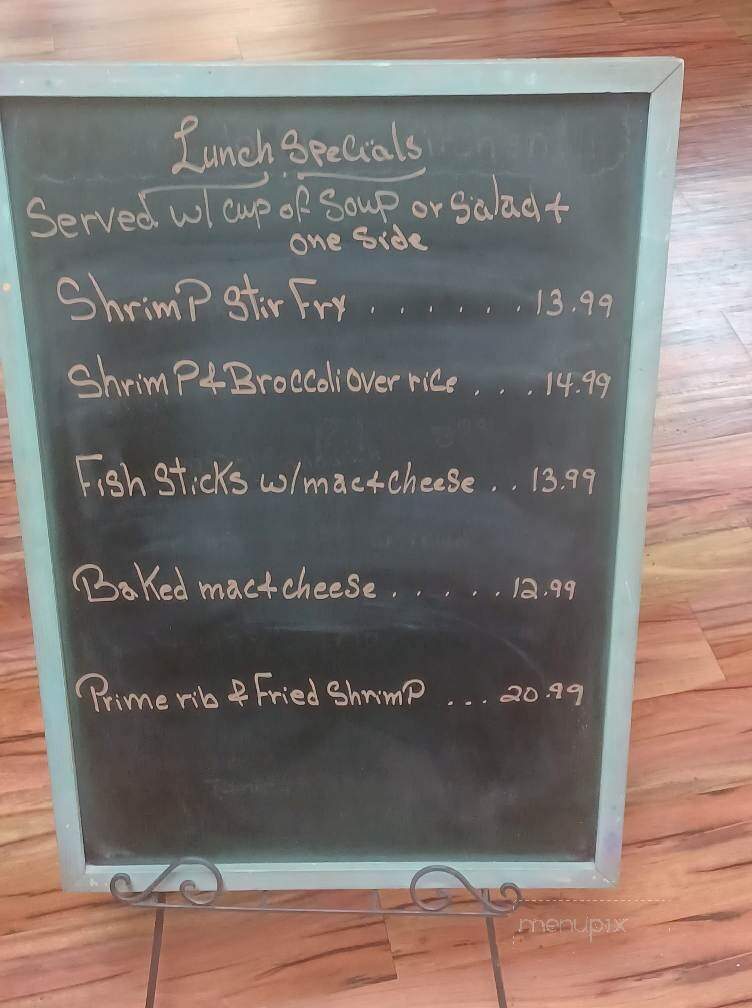 Lunch Specials
Served w/ cup of Soup or Salad +
one Side
Shrimp Stir Fry . . . . . . . 13.99
Shrimp & Broccoli Over rice . . . 14.99
Fish Sticks w/mac + cheese . . 13.99
Baked mac + cheese . . . . . 12.99
Prime rib & Fried Shrimp ... 20.99
menupix